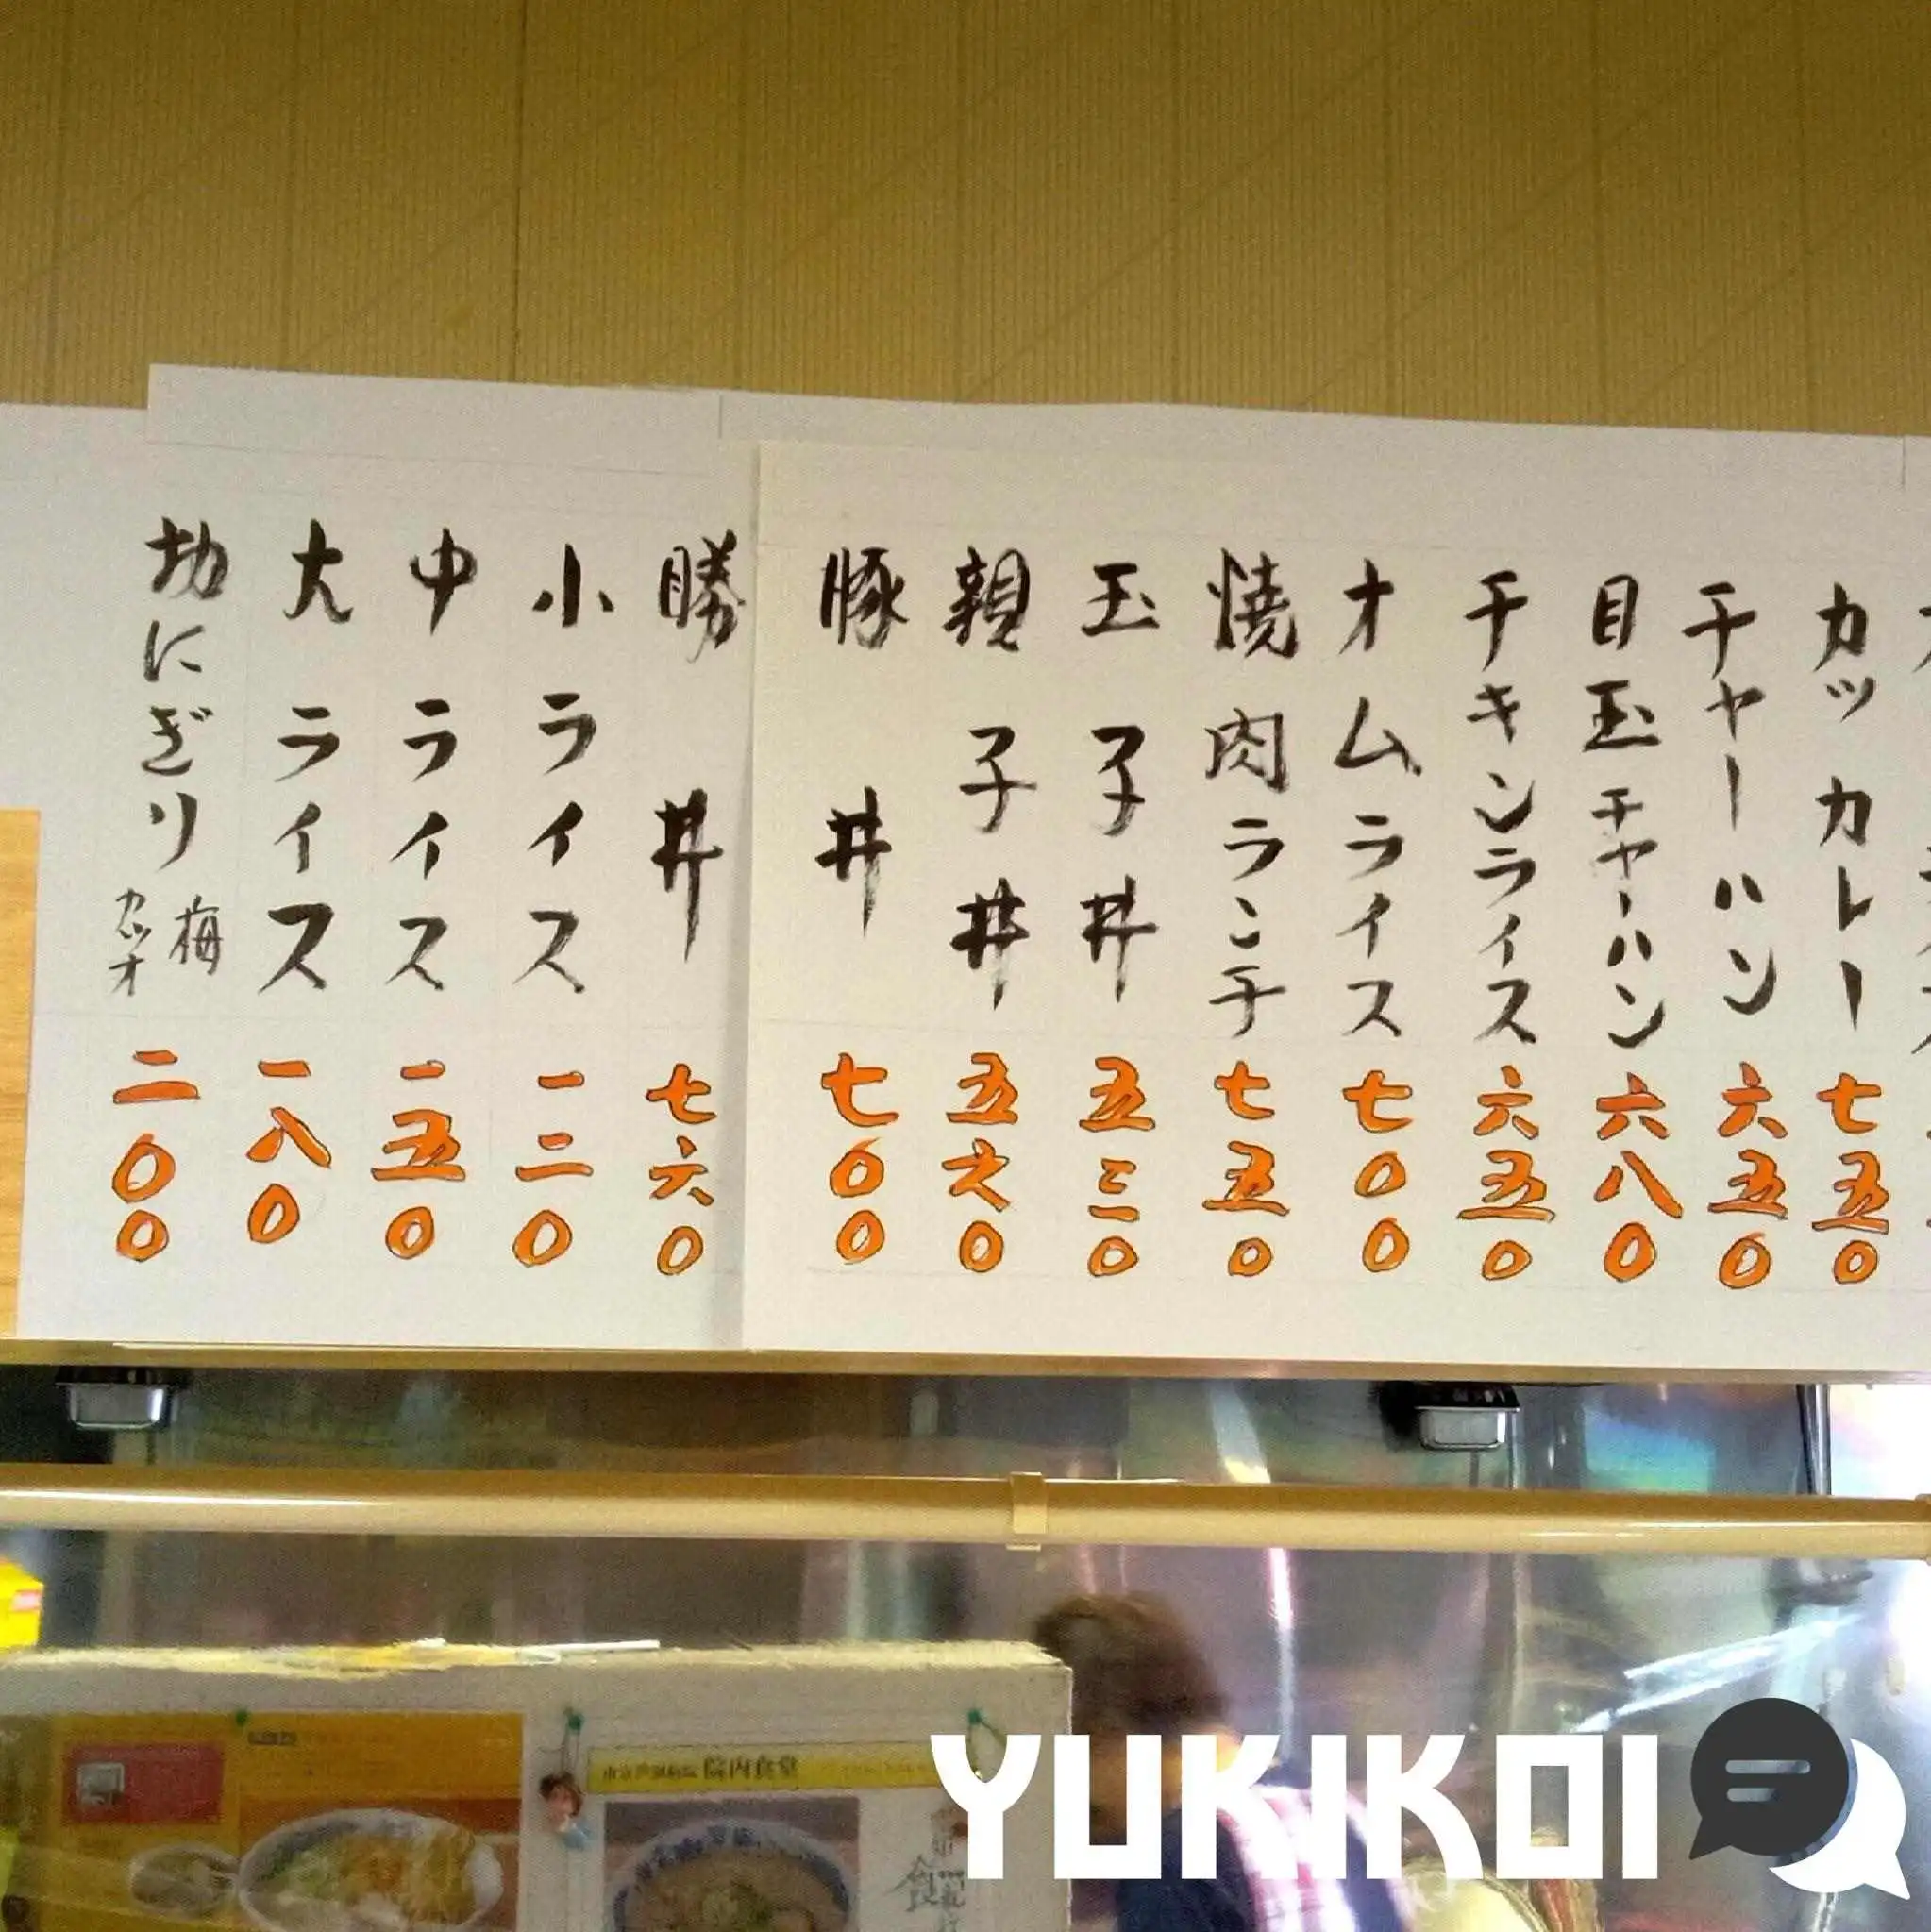 カツカレー 七五〇
チャーハン 六五〇
目玉チャーハン 六八〇
チキンライス 六五〇
オムライス 七〇〇
焼肉ランチ 七五〇
玉子丼 五三〇
親子丼 五六〇
豚丼 七〇〇
勝丼 七六〇
小ライス 一二〇
中ライス 一五〇
大ライス 一八〇
にぎり 梅 カツオ 二〇〇
院内食堂
YUKIKOI